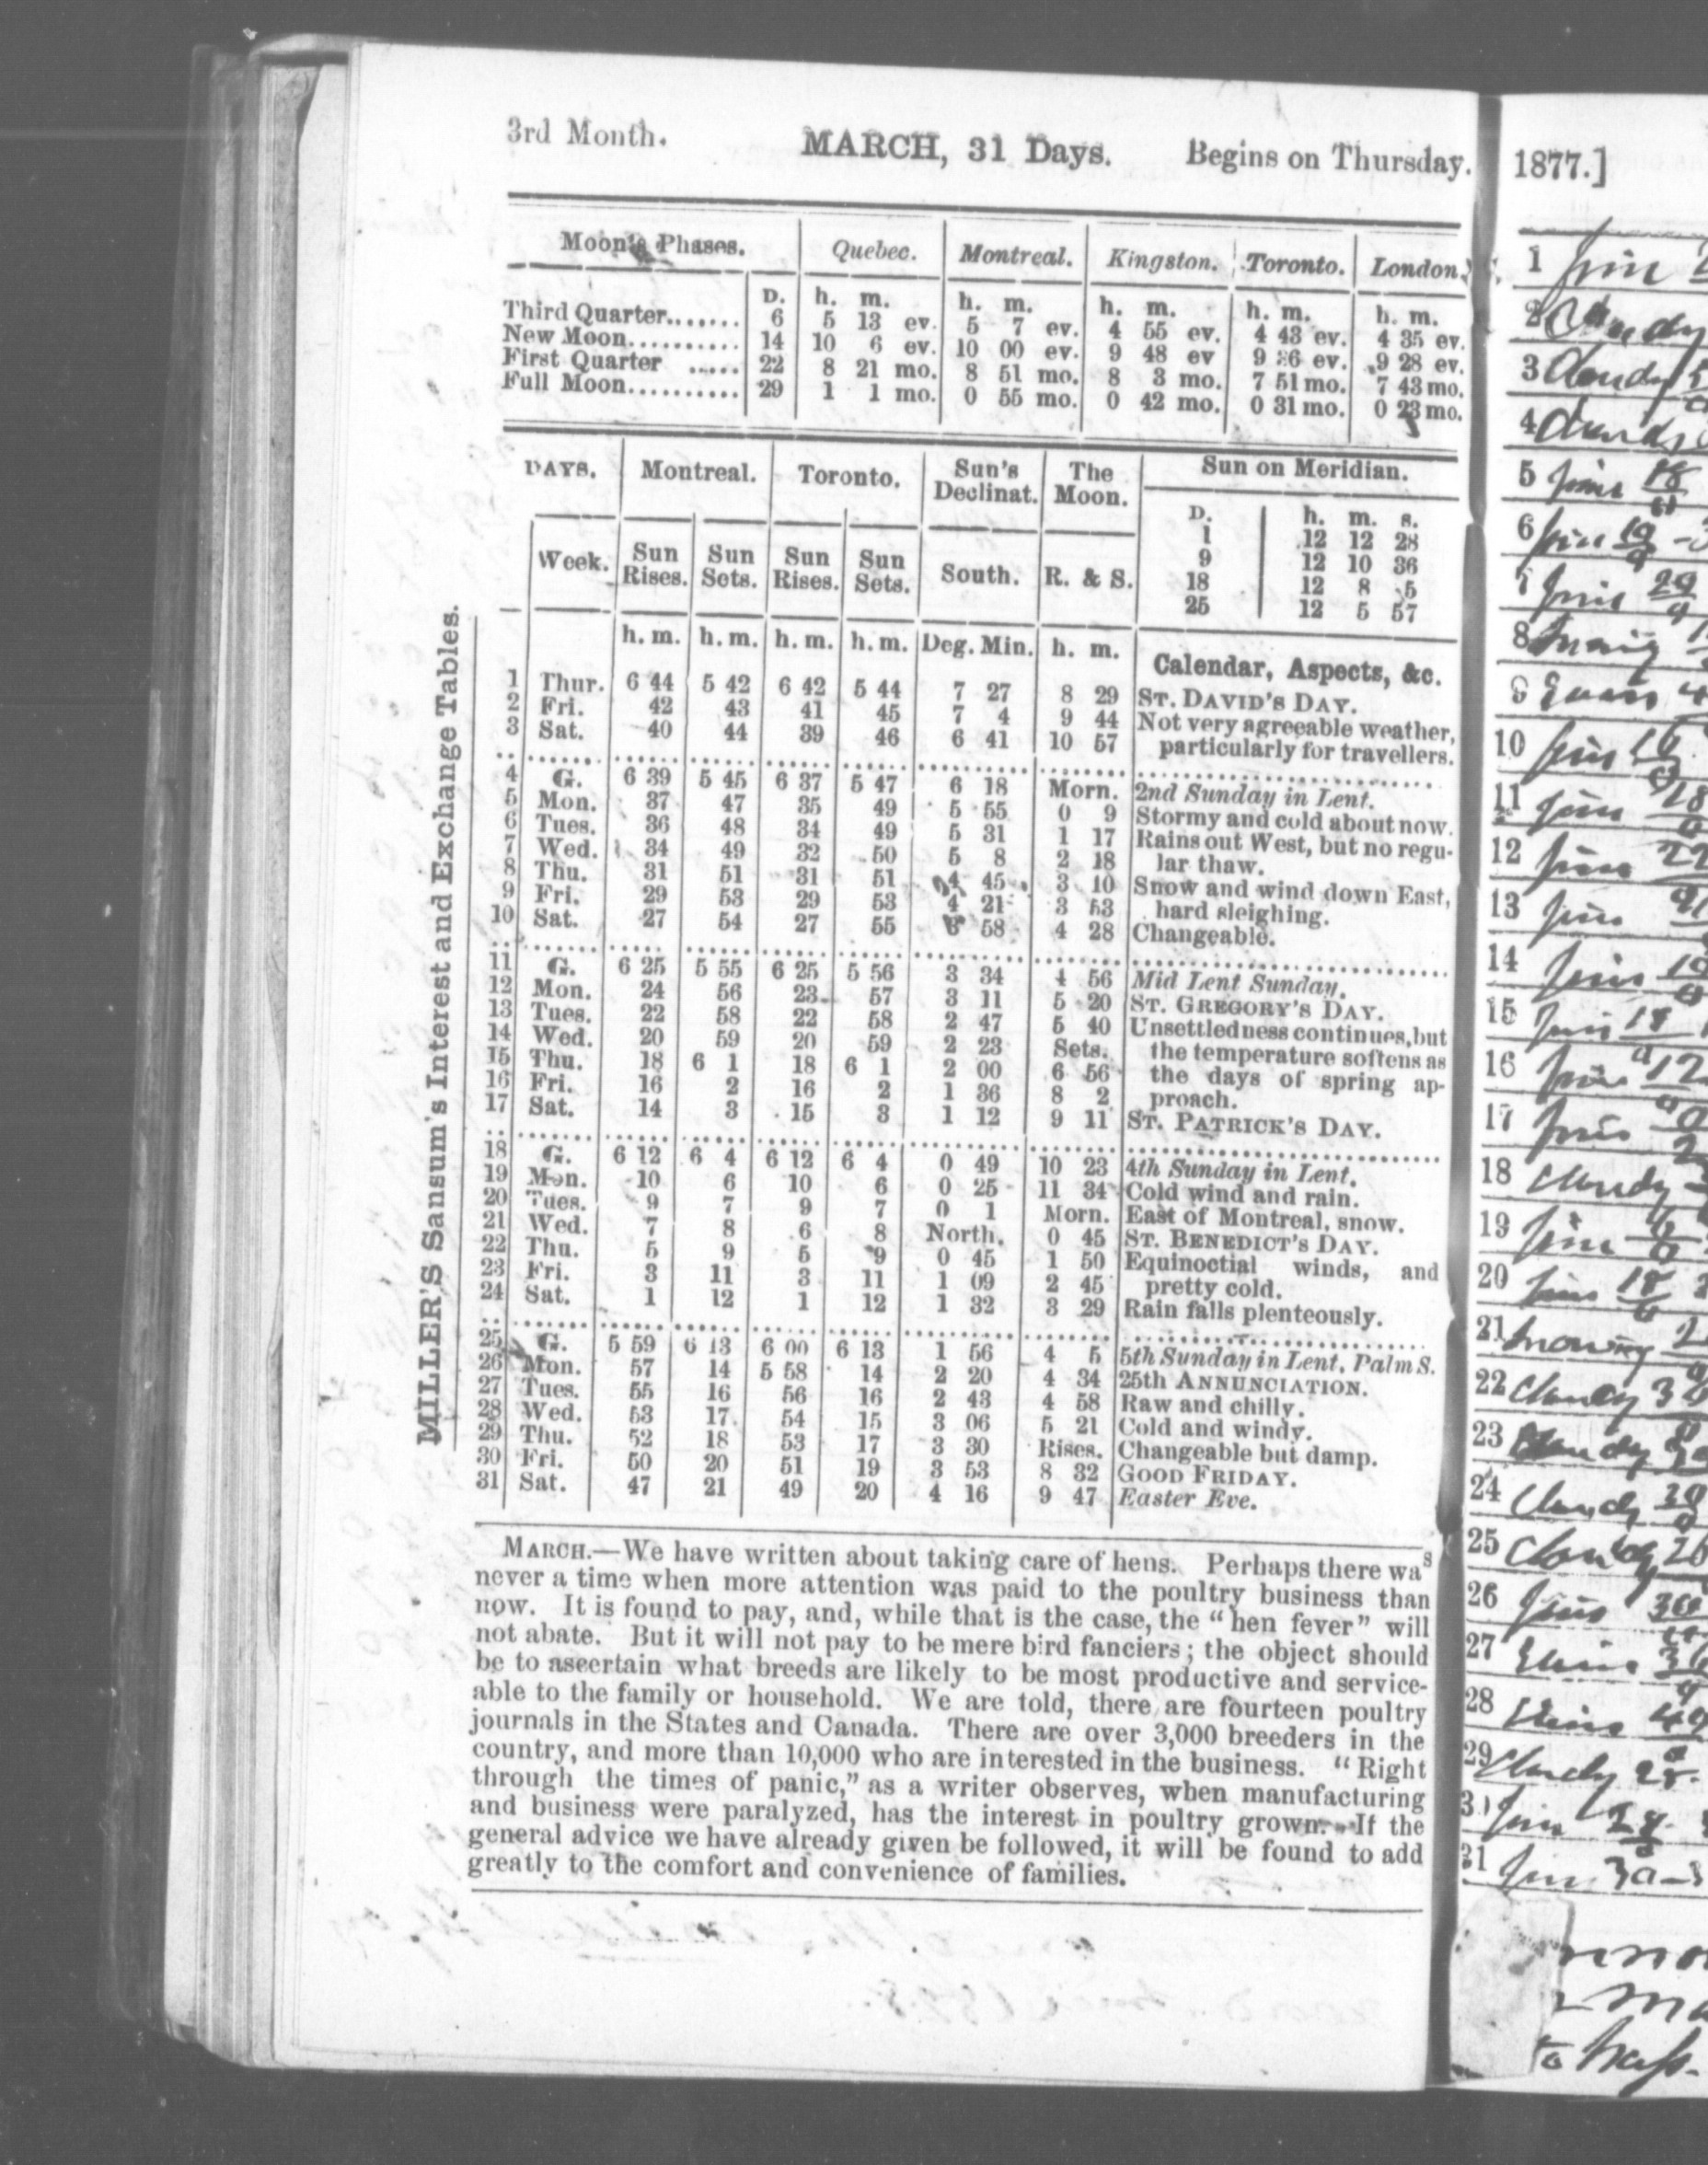 3rd Month. MARCH, 31 Days. Begins on Thursday.
Moon's Phases. Quebec. Montreal. Kingston. Toronto. London.
D. h. m. h. m. h. m. h. m. h. m.
Third Quarter....... 6 5 13 ev. 5 7 ev. 4 55 ev. 4 43 ev. 4 35 ev.
New Moon.......... 14 10 6 ev. 10 00 ev. 9 48 ev 9 36 ev. 9 28 ev.
First Quarter ..... 22 8 21 mo. 8 51 mo. 8 3 mo. 7 51 mo. 7 43 mo.
Full Moon.......... 29 1 1 mo. 0 55 mo. 0 42 mo. 0 31 mo. 0 23 mo.
DAYS. Montreal. Toronto. Sun's Declinat. The Moon. Sun on Meridian.
D. h. m. s.
1 12 12 28
9 12 10 36
18 12 8 5
25 12 5 57
Week. Sun Rises. Sun Sets. Sun Rises. Sun Sets. South. R. & S.
h. m. h. m. h. m. h. m. Deg. Min. h. m. Calendar, Aspects, &c.
1 Thur. 6 44 5 42 6 42 5 44 7 27 8 29 ST. DAVID'S DAY.
2 Fri. 42 43 41 45 7 4 9 44 Not very agreeable weather,
3 Sat. 40 44 39 46 6 41 10 57 particularly for travellers.
4 G. 6 39 5 45 6 37 5 47 6 18 Morn. 2nd Sunday in Lent.
5 Mon. 37 47 35 49 5 55 0 9 Stormy and cold about now.
6 Tues. 36 48 34 49 5 31 1 17 Rains out West, but no regu-
7 Wed. 34 49 32 50 5 8 2 18 lar thaw.
8 Thu. 31 51 31 51 4 45 3 10 Snow and wind down East,
9 Fri. 29 53 29 53 4 21 3 53 hard sleighing.
10 Sat. 27 54 27 55 3 58 4 28 Changeable.
11 G. 6 25 5 55 6 25 5 56 3 34 4 56 Mid Lent Sunday.
12 Mon. 24 56 23 57 3 11 5 20 ST. GREGORY'S DAY.
13 Tues. 22 58 22 58 2 47 5 40 Unsettledness continues, but
14 Wed. 20 59 20 59 2 23 Sets. the temperature softens as
15 Thu. 18 6 1 18 6 1 2 00 6 56 the days of spring ap-
16 Fri. 16 2 16 2 1 36 8 2 proach.
17 Sat. 14 3 15 3 1 12 9 11 ST. PATRICK'S DAY.
18 G. 6 12 6 4 6 12 6 4 0 49 10 23 4th Sunday in Lent.
19 Mon. 10 6 10 6 0 25 11 34 Cold wind and rain.
20 Tues. 9 7 9 7 0 1 Morn. East of Montreal, snow.
21 Wed. 7 8 6 8 North. 0 45 ST. BENEDICT'S DAY.
22 Thu. 5 9 5 9 0 45 1 50 Equinoctial winds, and
23 Fri. 3 11 3 11 1 09 2 45 pretty cold.
24 Sat. 1 12 1 12 1 32 3 29 Rain falls plenteously.
25 G. 5 59 6 13 6 00 6 13 1 56 4 5 5th Sunday in Lent. Palm S.
26 Mon. 57 14 5 58 14 2 20 4 34 25th ANNUNCIATION.
27 Tues. 55 16 56 16 2 43 4 58 Raw and chilly.
28 Wed. 53 17 54 15 3 06 5 21 Cold and windy.
29 Thu. 52 18 53 17 3 30 Rises. Changeable but damp.
30 Fri. 50 20 51 19 3 53 8 32 GOOD FRIDAY.
31 Sat. 47 21 49 20 4 16 9 47 Easter Eve.
MILLER'S Sansum's Interest and Exchange Tables.
MARCH.—We have written about taking care of hens. Perhaps there was
never a time when more attention was paid to the poultry business than
now. It is found to pay, and, while that is the case, the "hen fever" will
not abate. But it will not pay to be mere bird fanciers; the object should
be to ascertain what breeds are likely to be most productive and service-
able to the family or household. We are told, there are fourteen poultry
journals in the States and Canada. There are over 3,000 breeders in the
country, and more than 10,000 who are interested in the business. "Right
through the times of panic," as a writer observes, when manufacturing
and business were paralyzed, has the interest in poultry grown. If the
general advice we have already given be followed, it will be found to add
greatly to the comfort and convenience of families.
1877.]
1
2 Cloudy
3 Cloudy
4
5
6
7
8
9
10
11
12
13
14
15
16
17
18 cloudy
19
20
21
22 Cloudy
23 Cloudy
24 Cloudy
25 Cloudy
26
27
28
29 Cloudy